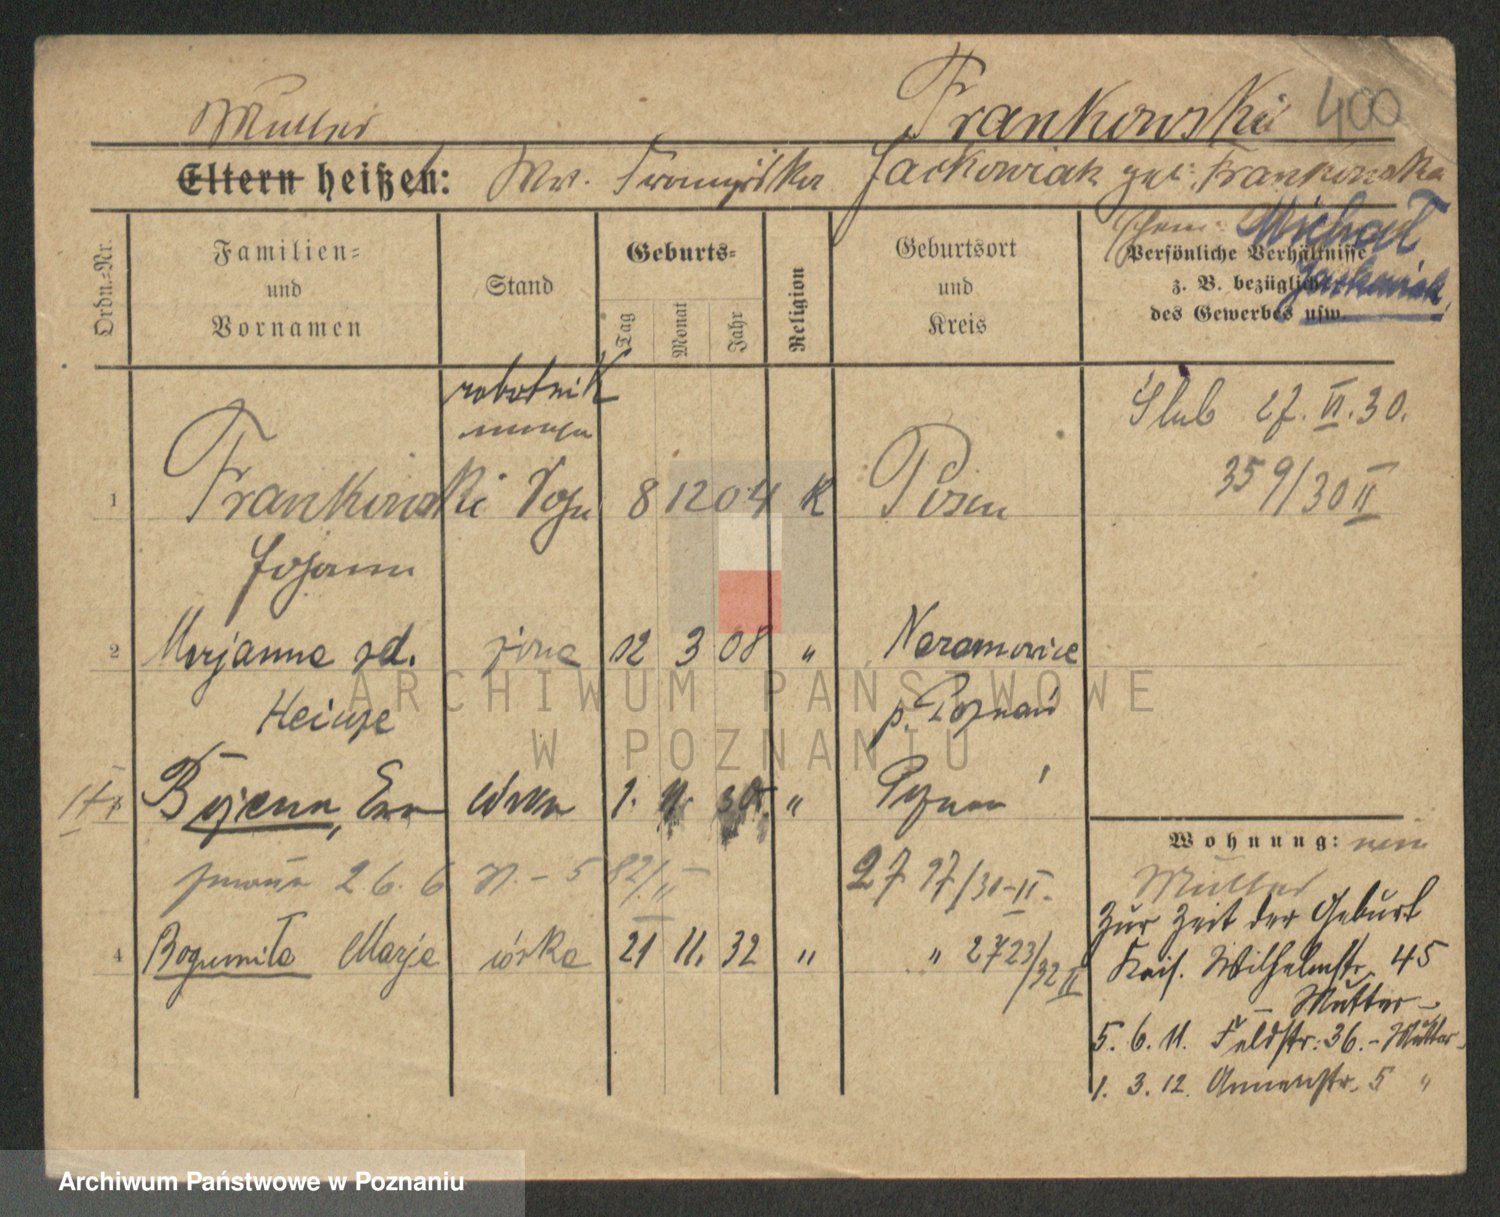 Mutter Frankowski 400
Eltern heißen: Jackowiak geb. Frankowska
Michał
Jackowiak
Ordn.-Nr.
Familien-
und
Vornamen
Stand
Geburts-
Tag
Monat
Jahr
Religion
Geburtsort
und
Kreis
Persönliche Verhältnisse
z. B. bezüglich
des Gewerbes usw.
robotnik
Ślub 27. VI. 30.
359/30 II
1 Frankowski Sohn 8 12 04 K Posen
Johann
2 Marjanna zd. żona 02 3 08 " Naramowice
Heinze p. Poznań
Bożena, Ewa córka 1. 11. 30. " Poznań
26. 6 582/II 27 97/30-II.
4 Bogumiła Marja córka 21 11. 32 " " 2723/32 II
Wohnung:
Mutter
Zur Zeit der Geburt
Kais. Wilhelmstr. 45
– Mutter –
5. 6. 11. Feldstr. 36. – Mutter –
1. 3. 12. Annenstr. 5 "
ARCHIWUM PAŃSTWOWE
W POZNANIU
Archiwum Państwowe w Poznaniu